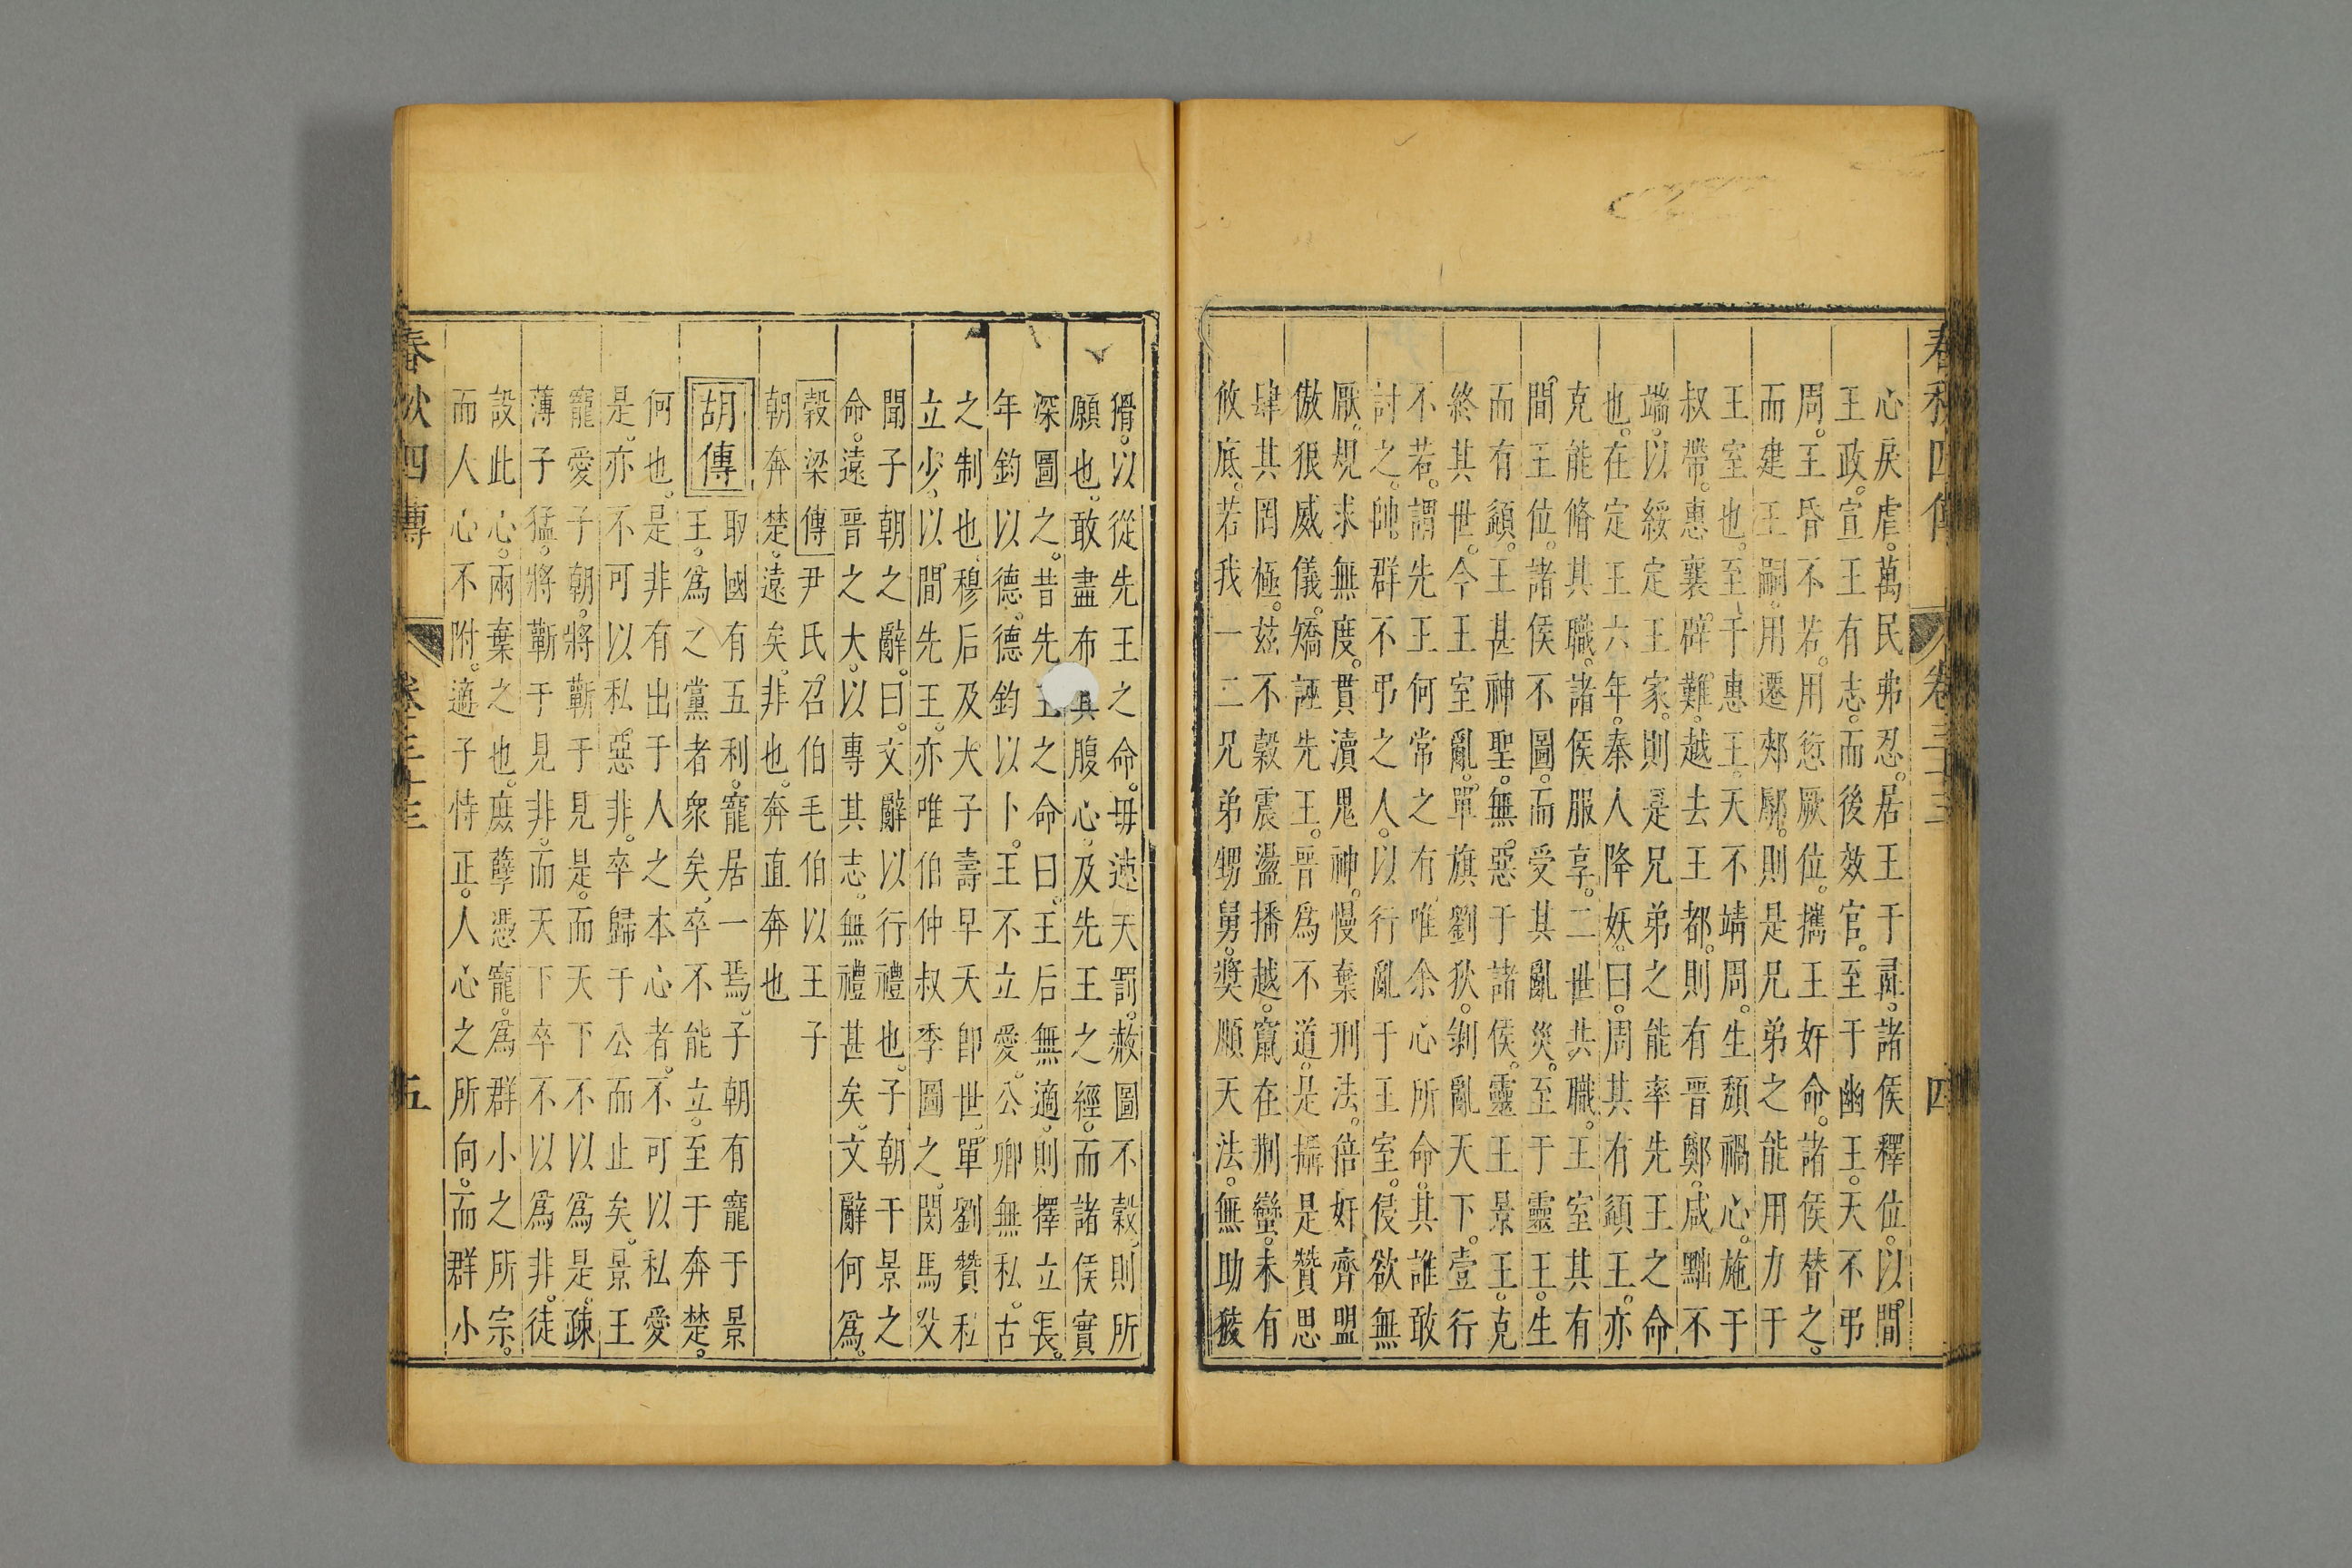 春秋四傳 卷三十三 四
心戾虐萬民弗忍居王于彘諸侯釋位以間
王政宣王有志而後效官至于幽王天不弔
周王昏不若用愆厥位攜王奸命諸侯替之
而建王嗣用遷郟鄏則是兄弟之能用力于
王室也至于惠王天不靖周生頹禍心施于
叔帶惠襄辟難越去王都則有晉鄭咸黜不
端以綏定王家則是兄弟之能率先王之命
也在定王六年秦人降妖曰周其有頿王亦
克能脩其職諸侯服享二世共職王室其有
間王位諸侯不圖而受其亂災至于靈王生
而有頿王甚神聖無惡于諸侯靈王景王克
終其世今王室亂單旗劉狄剝亂天下壹行
不若謂先王何常之有唯余心所命其誰敢
討之帥群不弔之人以行亂于王室侵欲無
厭規求無度貫瀆鬼神慢棄刑法倍奸齊盟
傲狠威儀矯誣先王晉爲不道是攝是贊思
肆其罔極茲不穀震盪播越竄在荊蠻未有
攸底若我一二兄弟甥舅獎順天法無助狡
猾以從先王之命毋速天罰赦圖不穀則所
願也敢盡布其腹心及先王之經而諸侯實
深圖之昔先王之命曰王后無適則擇立長
年鈞以德德鈞以卜王不立愛公卿無私古
之制也穆后及大子壽早夭卽世單劉贊私
立少以間先王亦唯伯仲叔季圖之閔馬父
聞子朝之辭曰文辭以行禮也子朝干景之
命遠晉之大以專其志無禮甚矣文辭何爲
穀梁傳尹氏召伯毛伯以王子
朝奔楚遠矣非也奔直奔也
胡傳 取國有五利寵居一焉子朝有寵于景
王爲之黨者衆矣卒不能立至于奔楚
何也是非有出于人之本心者不可以私愛
是亦不可以私惡非卒歸于公而止矣景王
寵愛子朝將蘄于見是而天下不以爲是疎
薄子猛將蘄于見非而天下卒不以爲非徒
設此心兩棄之也庶孽憑寵爲群小之所宗
而人心不附適子恃正人心之所向而群小
春秋四傳 卷三十三 五